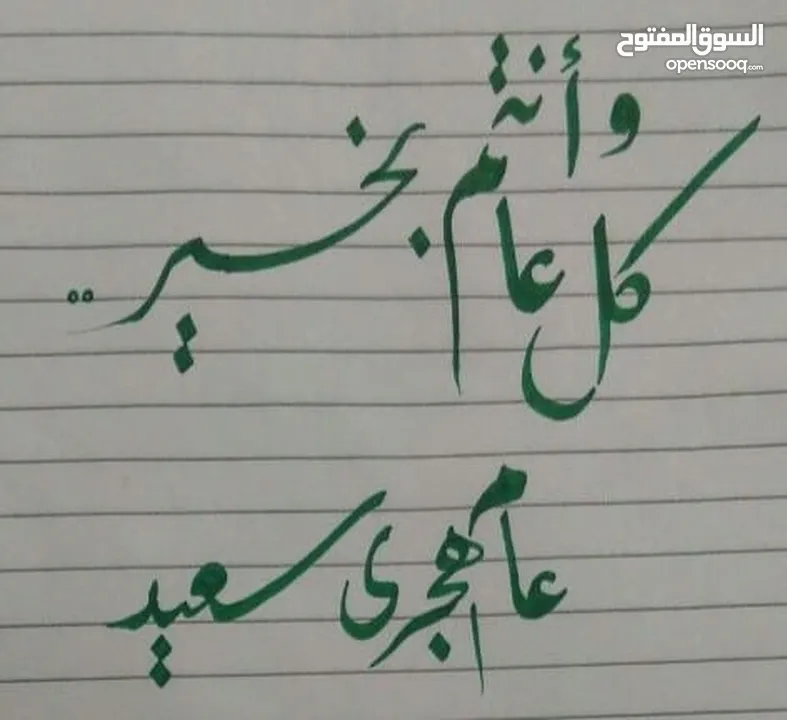 السوق المفتوح
opensooq.com
كل عام وأنتم بخير..
عام هجرى سعيد